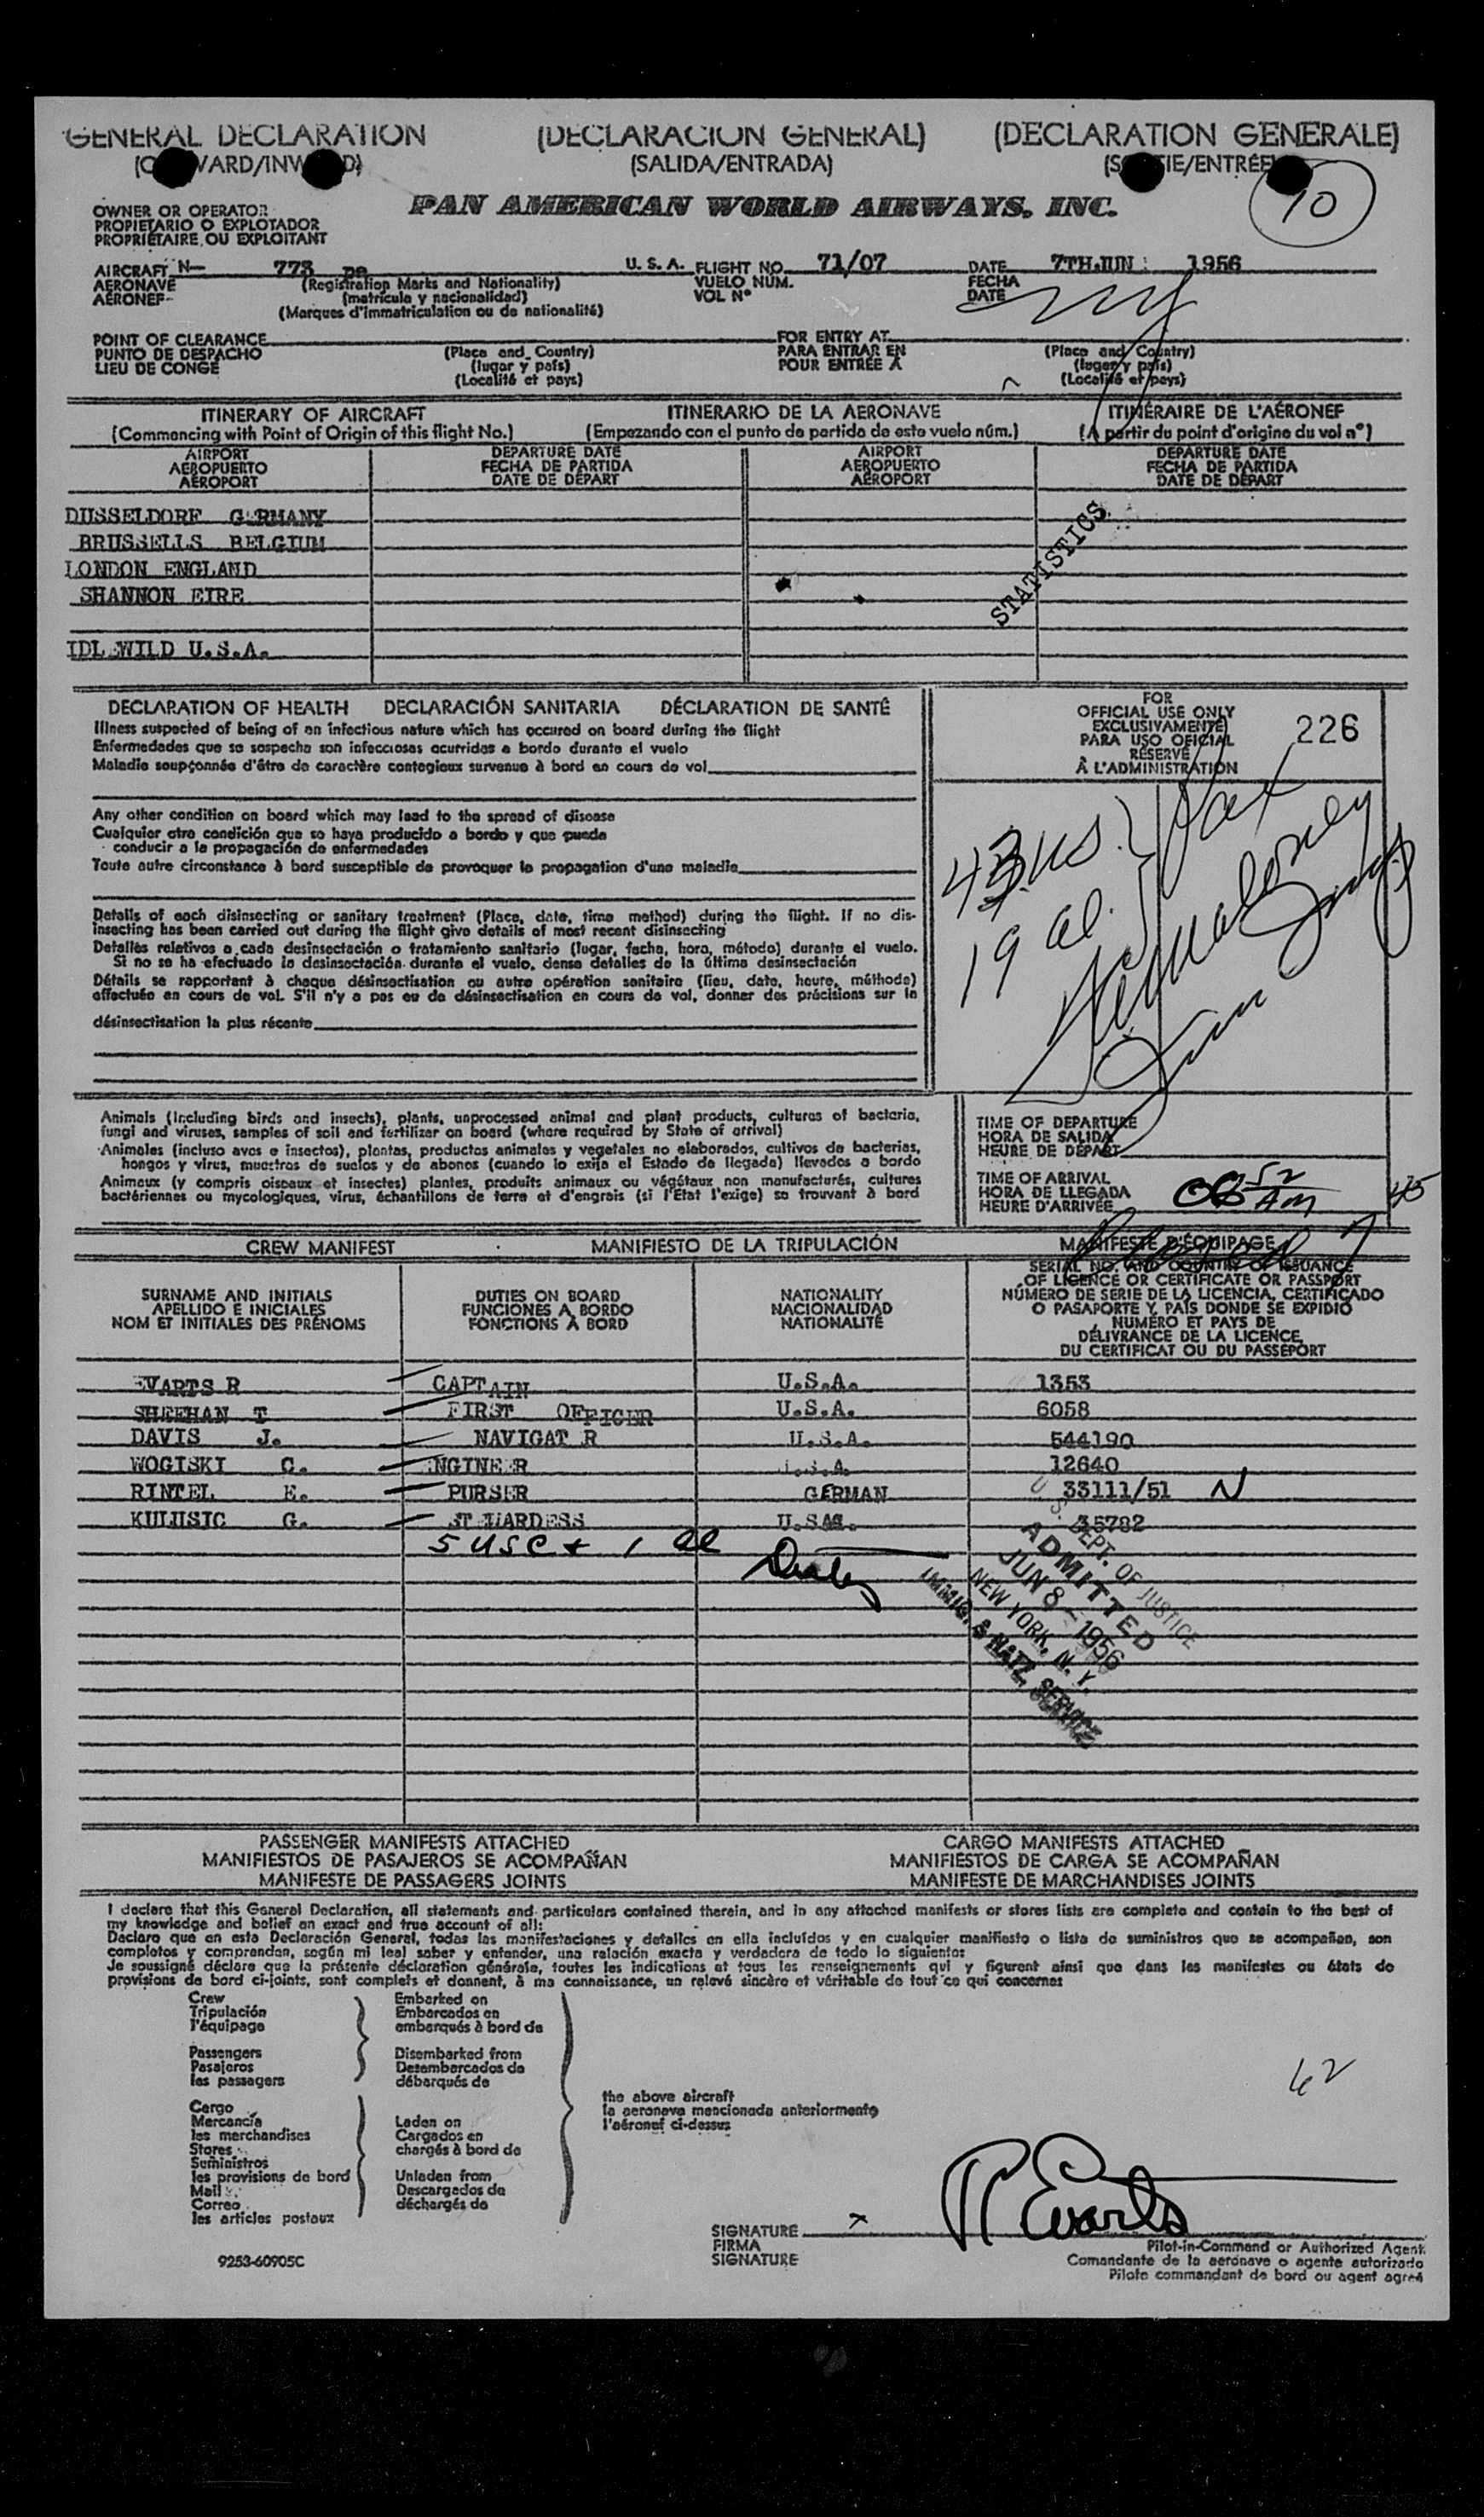 GENERAL DECLARATION (DECLARACION GENERAL) (DECLARATION GENERALE)
(SALIDA/ENTRADA)
10
PAN AMERICAN WORLD AIRWAYS, INC.
OWNER OR OPERATOR
PROPIETARIO O EXPLOTADOR
PROPRIÉTAIRE OU EXPLOITANT
AIRCRAFT N— 773 pa U. S. A. FLIGHT NO. 71/07 DATE 7TH JUN : 1956
AERONAVE (Registration Marks and Nationality) VUELO NÚM. FECHA
AÉRONEF (matrícula y nacionalidad) VOL Nº DATE
(Marques d'immatriculation ou de nationalité)
POINT OF CLEARANCE FOR ENTRY AT
PUNTO DE DESPACHO (Place and Country) PARA ENTRAR EN (Place and Country)
LIEU DE CONGÉ (lugar y país) POUR ENTRÉE À (lugar y país)
(Localité et pays) (Localité et pays)
ITINERARY OF AIRCRAFT ITINERARIO DE LA AERONAVE ITINÉRAIRE DE L'AÉRONEF
(Commencing with Point of Origin of this flight No.) (Empezando con el punto de partida de este vuelo núm.) (A partir du point d'origine du vol nº)
AIRPORT DEPARTURE DATE AIRPORT DEPARTURE DATE
AEROPUERTO FECHA DE PARTIDA AEROPUERTO FECHA DE PARTIDA
AÉROPORT DATE DE DÉPART AÉROPORT DATE DE DÉPART
DUSSELDORF G RMANY
BRUSSELLS BELGIUM
LONDON ENGLAND
SHANNON EIRE
STATISTICS
IDL WILD U.S.A.
DECLARATION OF HEALTH DECLARACIÓN SANITARIA DÉCLARATION DE SANTÉ
Illness suspected of being of an infectious nature which has occured on board during the flight
Enfermedades que se sospecha son infecciosas ocurridas a bordo durante el vuelo
Maladie soupçonnée d'être de caractère contagieux survenue à bord en cours de vol
Any other condition on board which may lead to the spread of disease
Cualquier otra condición que se haya producido a bordo y que pueda
conducir a la propagación de enfermedades
Toute autre circonstance à bord susceptible de provoquer la propagation d'une maladie
Details of each disinsecting or sanitary treatment (Place, date, time method) during the flight. If no dis-
insecting has been carried out during the flight give details of most recent disinsecting
Detalles relativos a cada desinsectación o tratamiento sanitario (lugar, fecha, hora, método) durante el vuelo.
Si no se ha efectuado la desinsectación durante el vuelo, dense detalles de la última desinsectación
Détails se rapportant à chaque désinsectisation ou autre opération sanitaire (lieu, date, heure, méthode)
effectuée en cours de vol. S'il n'y a pas eu de désinsectisation en cours de vol, donner des précisions sur la
désinsectisation la plus récente
FOR
OFFICIAL USE ONLY
EXCLUSIVAMENTE
PARA USO OFICIAL
RÉSERVÉ
À L'ADMINISTRATION
226
43 US. } Pax
19 al.
Animals (Including birds and insects), plants, unprocessed animal and plant products, cultures of bacteria,
fungi and viruses, samples of soil and fertilizer on board (where required by State of arrival)
Animales (incluso aves e insectos), plantas, productos animales y vegetales no elaborados, cultivos de bacterias,
hongos y virus, muestras de suelos y de abonos (cuando lo exija el Estado de llegada) llevados a bordo
Animaux (y compris oiseaux et insectes) plantes, produits animaux ou végétaux non manufacturés, cultures
bactériennes ou mycologiques, virus, échantillons de terre et d'engrais (si l'Etat l'exige) se trouvant à bord
TIME OF DEPARTURE
HORA DE SALIDA
HEURE DE DÉPART
TIME OF ARRIVAL
HORA DE LLEGADA
HEURE D'ARRIVÉE
52 AM
45
CREW MANIFEST MANIFIESTO DE LA TRIPULACIÓN MANIFESTE D'ÉQUIPAGE
SURNAME AND INITIALS DUTIES ON BOARD NATIONALITY SERIAL NO. AND COUNTRY OF ISSUANCE
APELLIDO E INICIALES FUNCIONES A BORDO NACIONALIDAD OF LICENCE OR CERTIFICATE OR PASSPORT
NOM ET INITIALES DES PRÉNOMS FONCTIONS À BORD NATIONALITÉ NÚMERO DE SERIE DE LA LICENCIA, CERTIFICADO
O PASAPORTE Y PAÍS DONDE SE EXPIDIÓ
NUMÉRO ET PAYS DE
DÉLIVRANCE DE LA LICENCE,
DU CERTIFICAT OU DU PASSEPORT
EVARTS R CAPTAIN U.S.A. 1353
SHEEHAN T FIRST OFFICER U.S.A. 6058
DAVIS J. NAVIGAT R U.S.A. 544190
WOGISKI C. NGINE R U.S.A. 12640
RINTEL E. PURSER GERMAN 33111/51 N
KULUSIC G. ST WARDESS U.S.A.
5 USC + 1 al
U. S. DEPT. OF JUSTICE
ADMITTED
JUN 8 - 1956
NEW YORK, N. Y.
IMMIG. & NATZ. SERVICE
PASSENGER MANIFESTS ATTACHED CARGO MANIFESTS ATTACHED
MANIFIESTOS DE PASAJEROS SE ACOMPAÑAN MANIFIESTOS DE CARGA SE ACOMPAÑAN
MANIFESTE DE PASSAGERS JOINTS MANIFESTE DE MARCHANDISES JOINTS
I declare that this General Declaration, all statements and particulars contained therein, and in any attached manifests or stores lists are complete and contain to the best of
my knowledge and belief an exact and true account of all:
Declaro que en esta Declaración General, todas las manifestaciones y detalles en ella incluídos y en cualquier manifiesto o lista de suministros que se acompañan, son
completos y comprenden, según mi leal saber y entender, una relación exacta y verdadera de todo lo siguiente:
Je soussigné déclare que la présente déclaration générale, toutes les indications et tous les renseignements qui y figurent ainsi que dans les manifestes ou états de
provisions de bord ci-joints, sont complets et donnent, à ma connaissance, un relevé sincère et véritable de tout ce qui concerne:
Crew Embarked on
Tripulación Embarcados en
l'équipage embarqués à bord de
Passengers Disembarked from
Pasajeros Desembarcados de
les passagers débarqués de
the above aircraft
la aeronave mencionada anteriormente
l'aéronef ci-dessus
Cargo
Mercancía Laden on
les merchandises Cargados en
Stores chargés à bord de
Suministros
les provisions de bord Unladen from
Mail Descargados de
Correo déchargés de
les articles postaux
62
SIGNATURE x R Evarts
FIRMA
SIGNATURE
Pilot-in-Command or Authorized Agent
Comandante de la aeronave o agente autorizado
Pilote commandant de bord ou agent agréé
9253-60905C